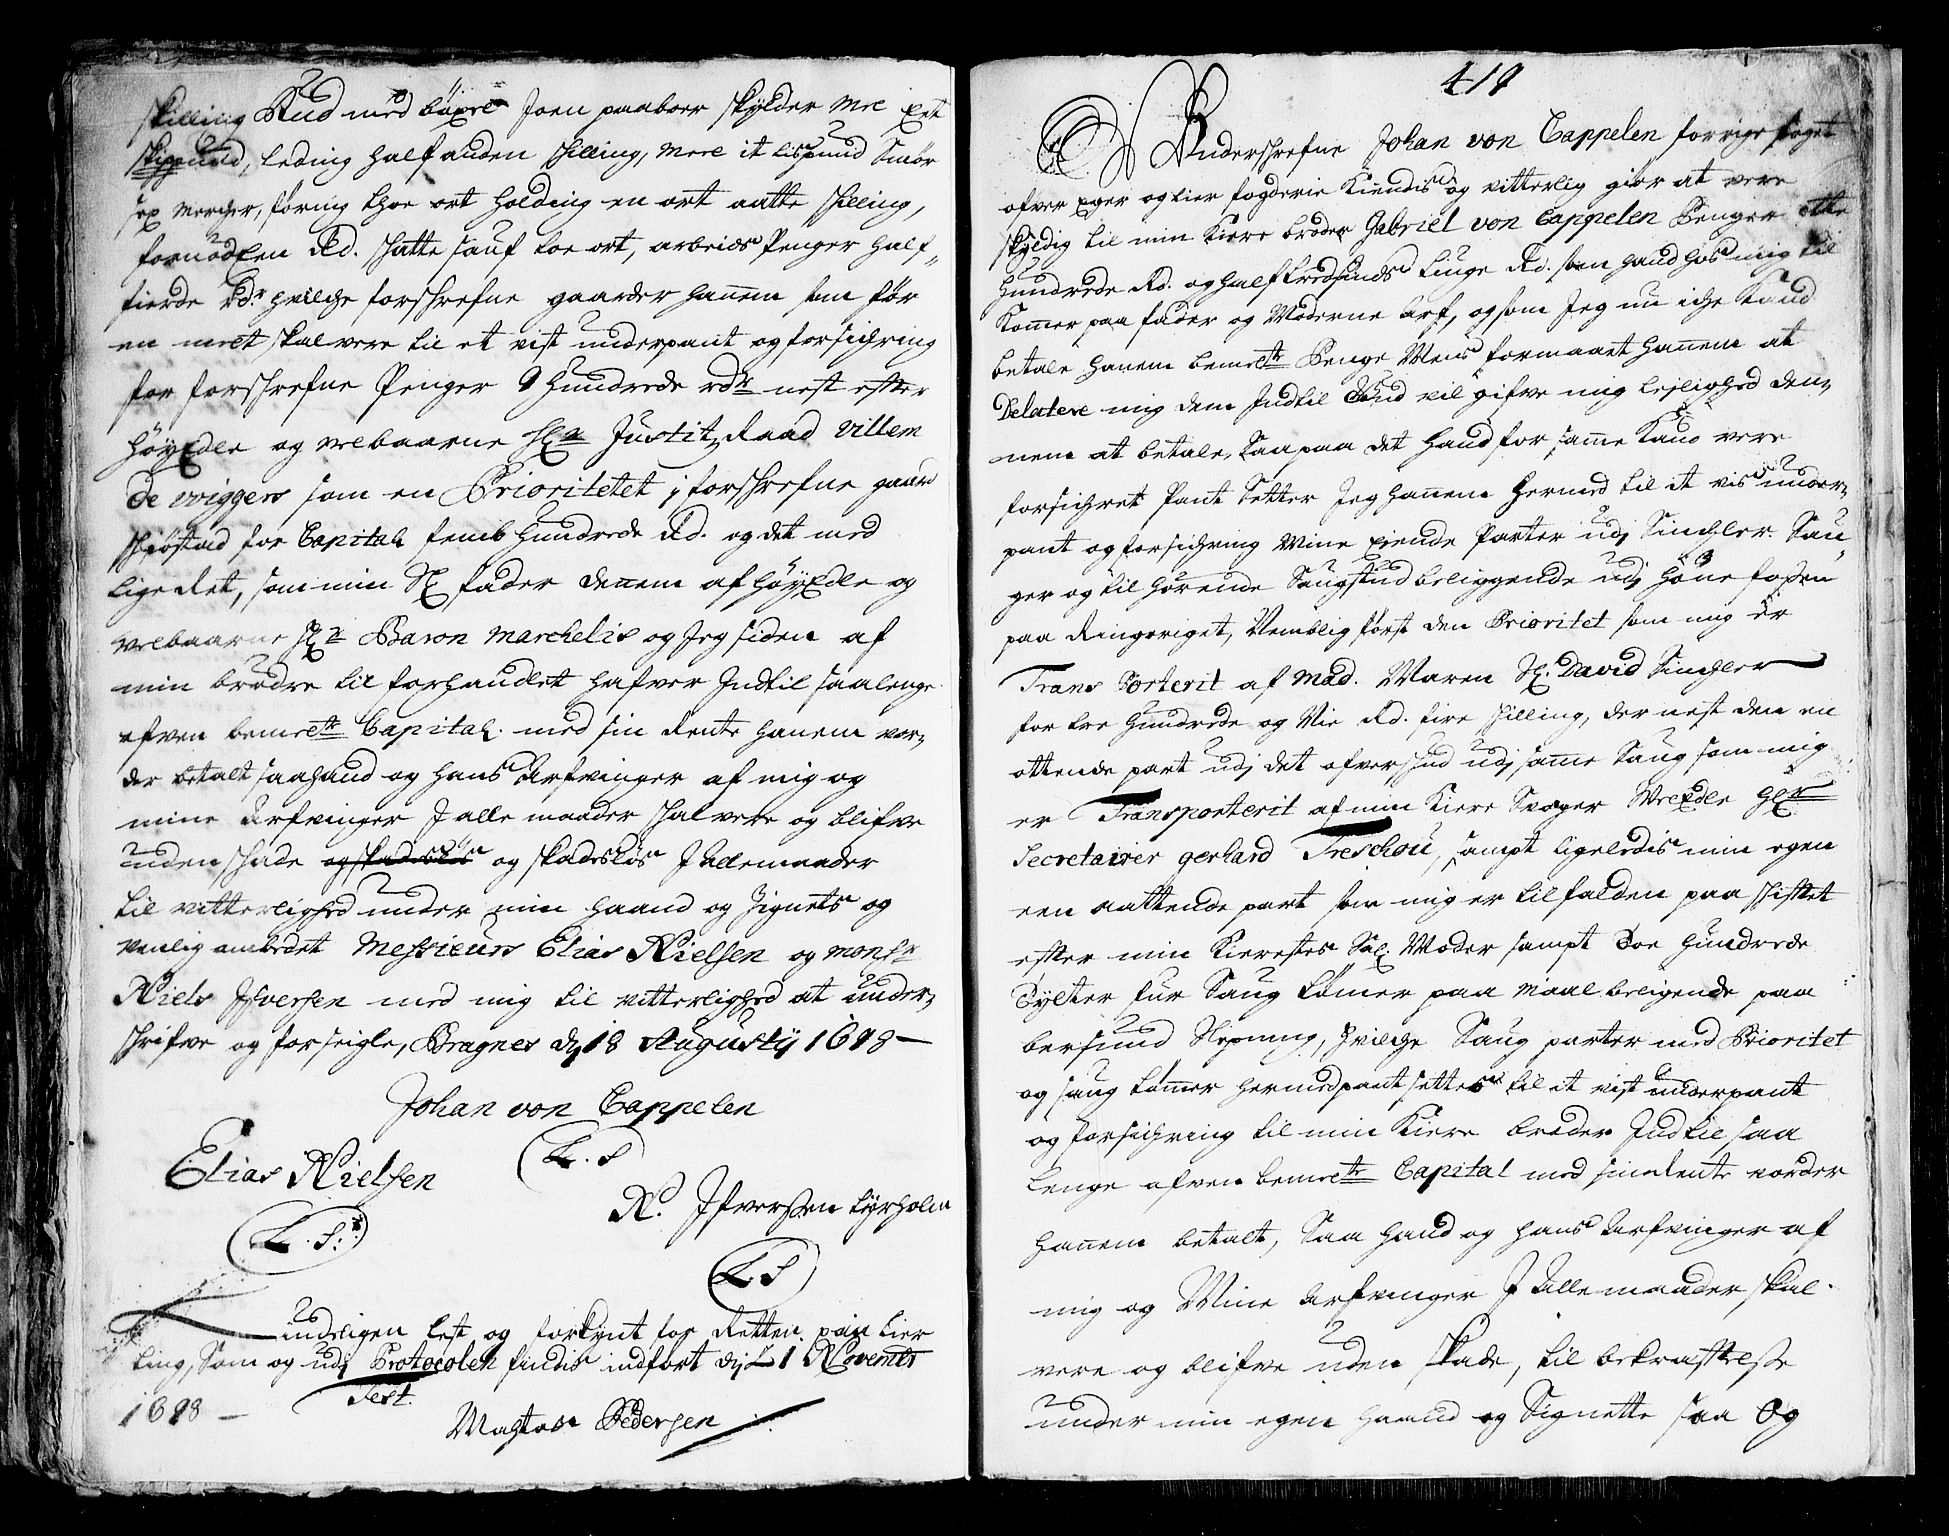 skilling Knud med böxel Joen paaboer skylder Mel Eet
skippund, leding halfanden skilling, Meel it lispund Smör
sex Mercher, föring thoe ort holding en ort aatte skilling,
fornödEen Rd. skatte sauf toe ort, arbeids Penger half-
fierde Rdr hvilche forschrefne gaarder hannem som för
en melt skal vere til et vist underpant og forsichring
for forschrefne Penger 9 hundrede rdr nest efter
höyEdle og velbaarne Hr Justitz Raad Villem
de vrigger som en Prioritetet j forschrefne gaard
schöstad for Capital femb hundrede Rd. og det med
lige ret, som min Sl fader dennem af höyEdle og
velbaarne Hr Baron Marchelis og Jeg siden af
min brödre til forhandlet hafver Indtil saalenge
ofven bemelte Capital med sin Rente hanem vor-
der betalt saahand og hans Arfvinger af mig og
mine Arfvinger J alle maader skal vere og blifve
uden skade og skadeslös og skadeslös J Allemaader
til vitterlighed under min haand og Zignets og
venlig ombedet Messieurs Elias Nielsen og Monsr
Niels Ifversen med mig til vitterlighed at under-
schrifve og forseigle, Bragnes dj 18 Augustij 1698
Johan von Cappelen
L. S
Elias Nielsen
N. Ifversen Lyrholm
L. S.
L S
indeligen lest og forkynt for Retten paa Lier
ting, Som og udj Protocolen findis indfört dj 21 Novembr
1698
Test.
Pedersen
419
Underschrefne Johan von Cappelen forrige foget
ofver Eger og Lier fogderie Kiendis og vitterlig giör at vere
skyldig til min Kiere broder Gabriel von Cappelen Penger otte
hundrede Rd. og half tredsinds tiuge Rd. som hand hos mig til
Komer paa fader og Moderne Arf, og som Jeg nu iche Kand
betale hanem bemelte Penge Mens formaaet hanem at
Delatere mig dem Indtil Gud vil gifve mig lejlighed den-
nem at betale, Saa paa det hand for same Kand vere
forsichret Pant Setter Jeg hanem hermed til it vis under-
pant og forsichring Mine Eiende Parter udj Sinchler Sau-
ger og til hörende Saugstud beliggende udj Höne fossen
paa Ringeriget, Nemblig först den Prioritet som mig er
Trans Porterit af Mad. Maren Sl. David Sinchler
for tre hundrede og Nie Rd. fire skilling, der nest den en
ottende part udj det ofverskud udj same Saug som mig
er Transporterit af min Kiere Svoger VelEdle Hr
Secretairer gerhard Treschou, sampt ligeledis min egen
een aattende part som mig er tilfalden paa skiftet
efter min Kierestes Sal. Moder sampt Toe hundrede
Tylter fur Saug tömer paa Maal beligende paa
bersund Nepning, hvilche Saug parter med Prioritet
og saug tömer hermed pant settes til it vist underpant
og forsichring til min Kiere broder Indtil saa
lenge ofven bemelte Capital med sin Rente vorder
hanem betalt, Saa hand og hans Arfvinger af
mig og Mine Arfvinger J Alle maader skal
vere og blifve uden skade, til bekræftelse
under min egen haand og Signette saa Og